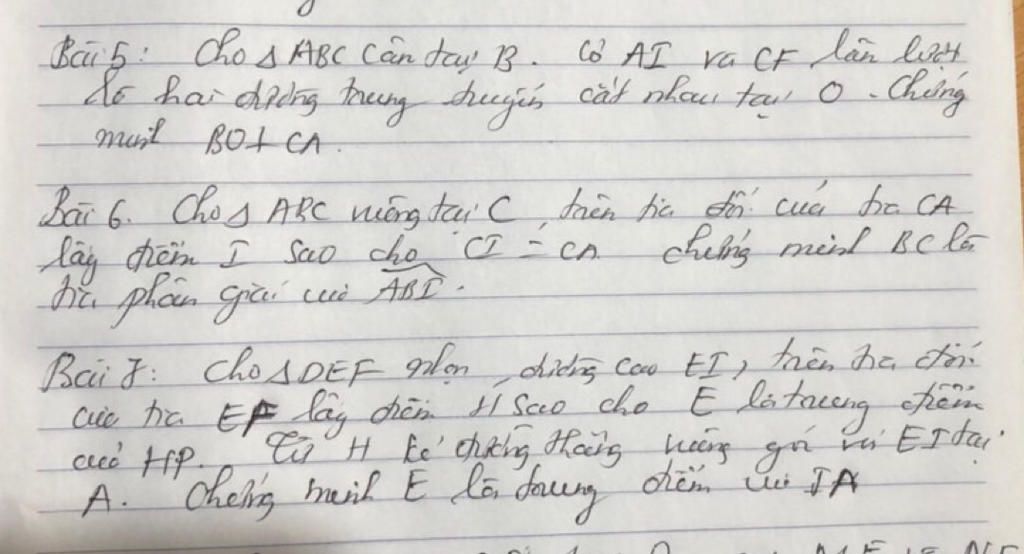 Bài 5: Cho Δ ABC cân tại B. Có AI và CF lần lượt
là hai đường trung tuyến cắt nhau tại O. Chứng
minh BO⊥CA.
Bài 6. Cho Δ ABC vuông tại C, trên tia đối của tia CA
lấy điểm I sao cho CI = CA chứng minh BC là
tia phân giác của ABI.
Bài 7: Cho Δ DEF nhọn, đường cao EI, trên tia đối
của tia EF lấy điểm H sao cho E là trung điểm
của HP. Từ H kẻ đường thẳng vuông góc với EI tại
A. Chứng minh E là trung điểm của IA